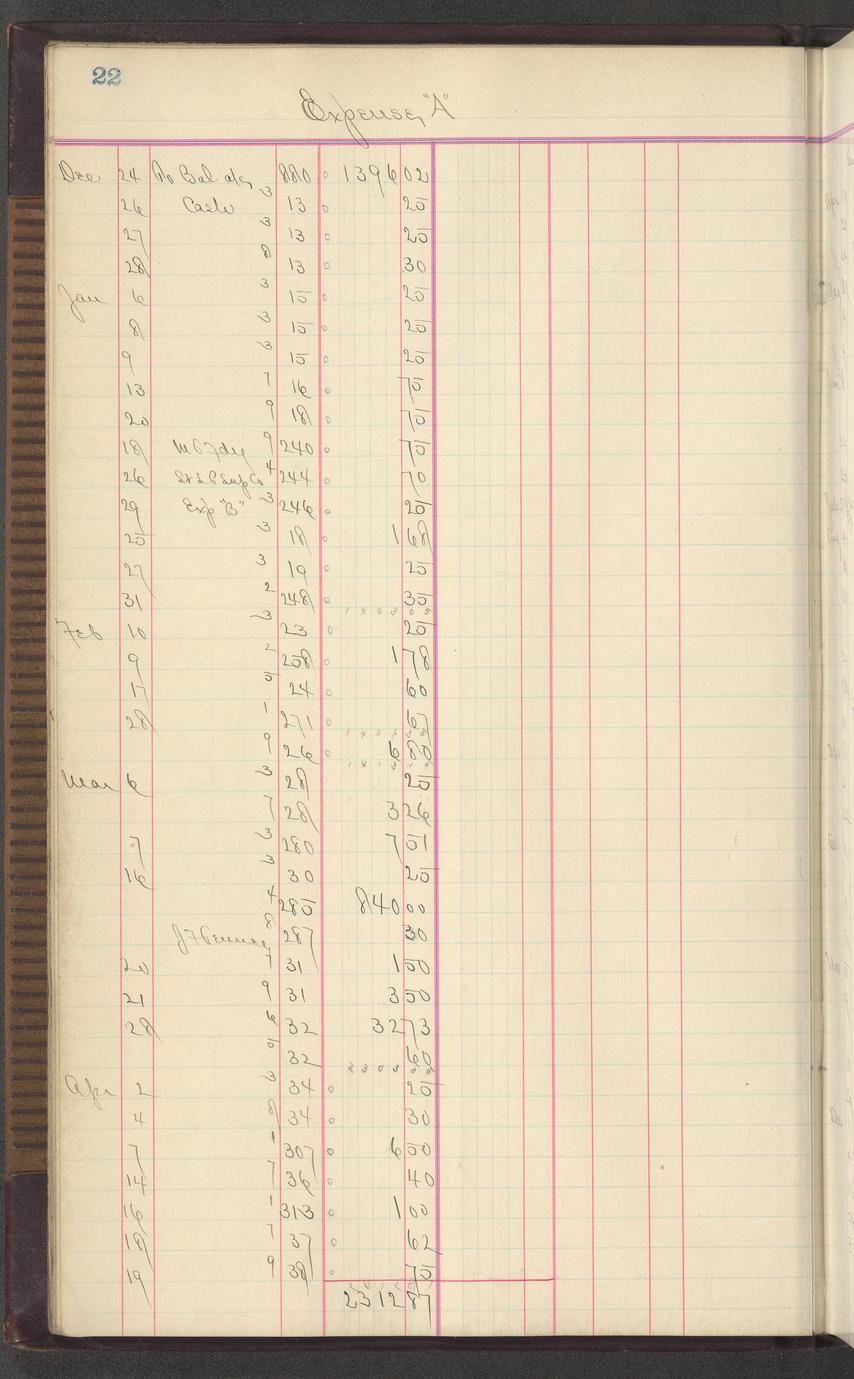 22
Expense, "A"
Dec 24 To Bal a/c 880 1396 02
26 Cash 3 13 25
27 3 13 25
28 8 13 30
Jan 6 3 15 25
8 3 15 25
9 3 15 25
13 7 16 75
20 9 18 75
18 9 240 75
26 4 244 70
29 Exp "B" 3 246 25
25 3 18 1 68
27 3 19 25
31 2 248 35
Feb 10 3 23 25
9 2 258 1 78
17 5 24 60
28 1 271 67
9 26 6 80
Mar 6 3 28 25
7 28 3 26
7 3 280 7 51
16 3 30 25
4 285 840 00
8 287 30
20 7 31 1 50
21 9 31 3 50
28 6 32 32 73
5 32 60
Apr 2 3 34 25
4 8 34 30
7 1 307 6 50
14 7 36 40
16 1 313 1 00
18 7 37 62
19 9 38 75
2312 87